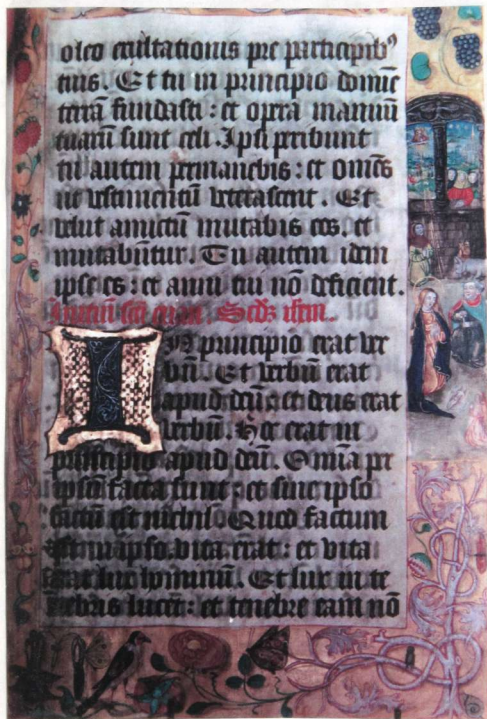 oleo exultationis pre participib⁹
tuis. Et tu in principio domīe
terrā fundasti: et opera manuū
tuarū sunt celi. Ipsi peribunt
tu autem permanebis: et omēs
ut vestimentū veterascent. Et
velut amictū mutabis eos. et
mutabūtur. Tu autem idem
ipse es: et anni tui nō deficient.
Initiū scī euan. Scdȝ iohem.
IN principio erat ver
bū. Et verbū erat
apud deū: et deus erat
verbū. Hoc erat in
principio apud deū. Omīa per
ipsū facta sunt: et sine ipso
factū est nichil. Quod factum
est in ipso. vita erat: et vita
erat lux hominū. Et lux in te
nebris lucet: et tenebre eam nō